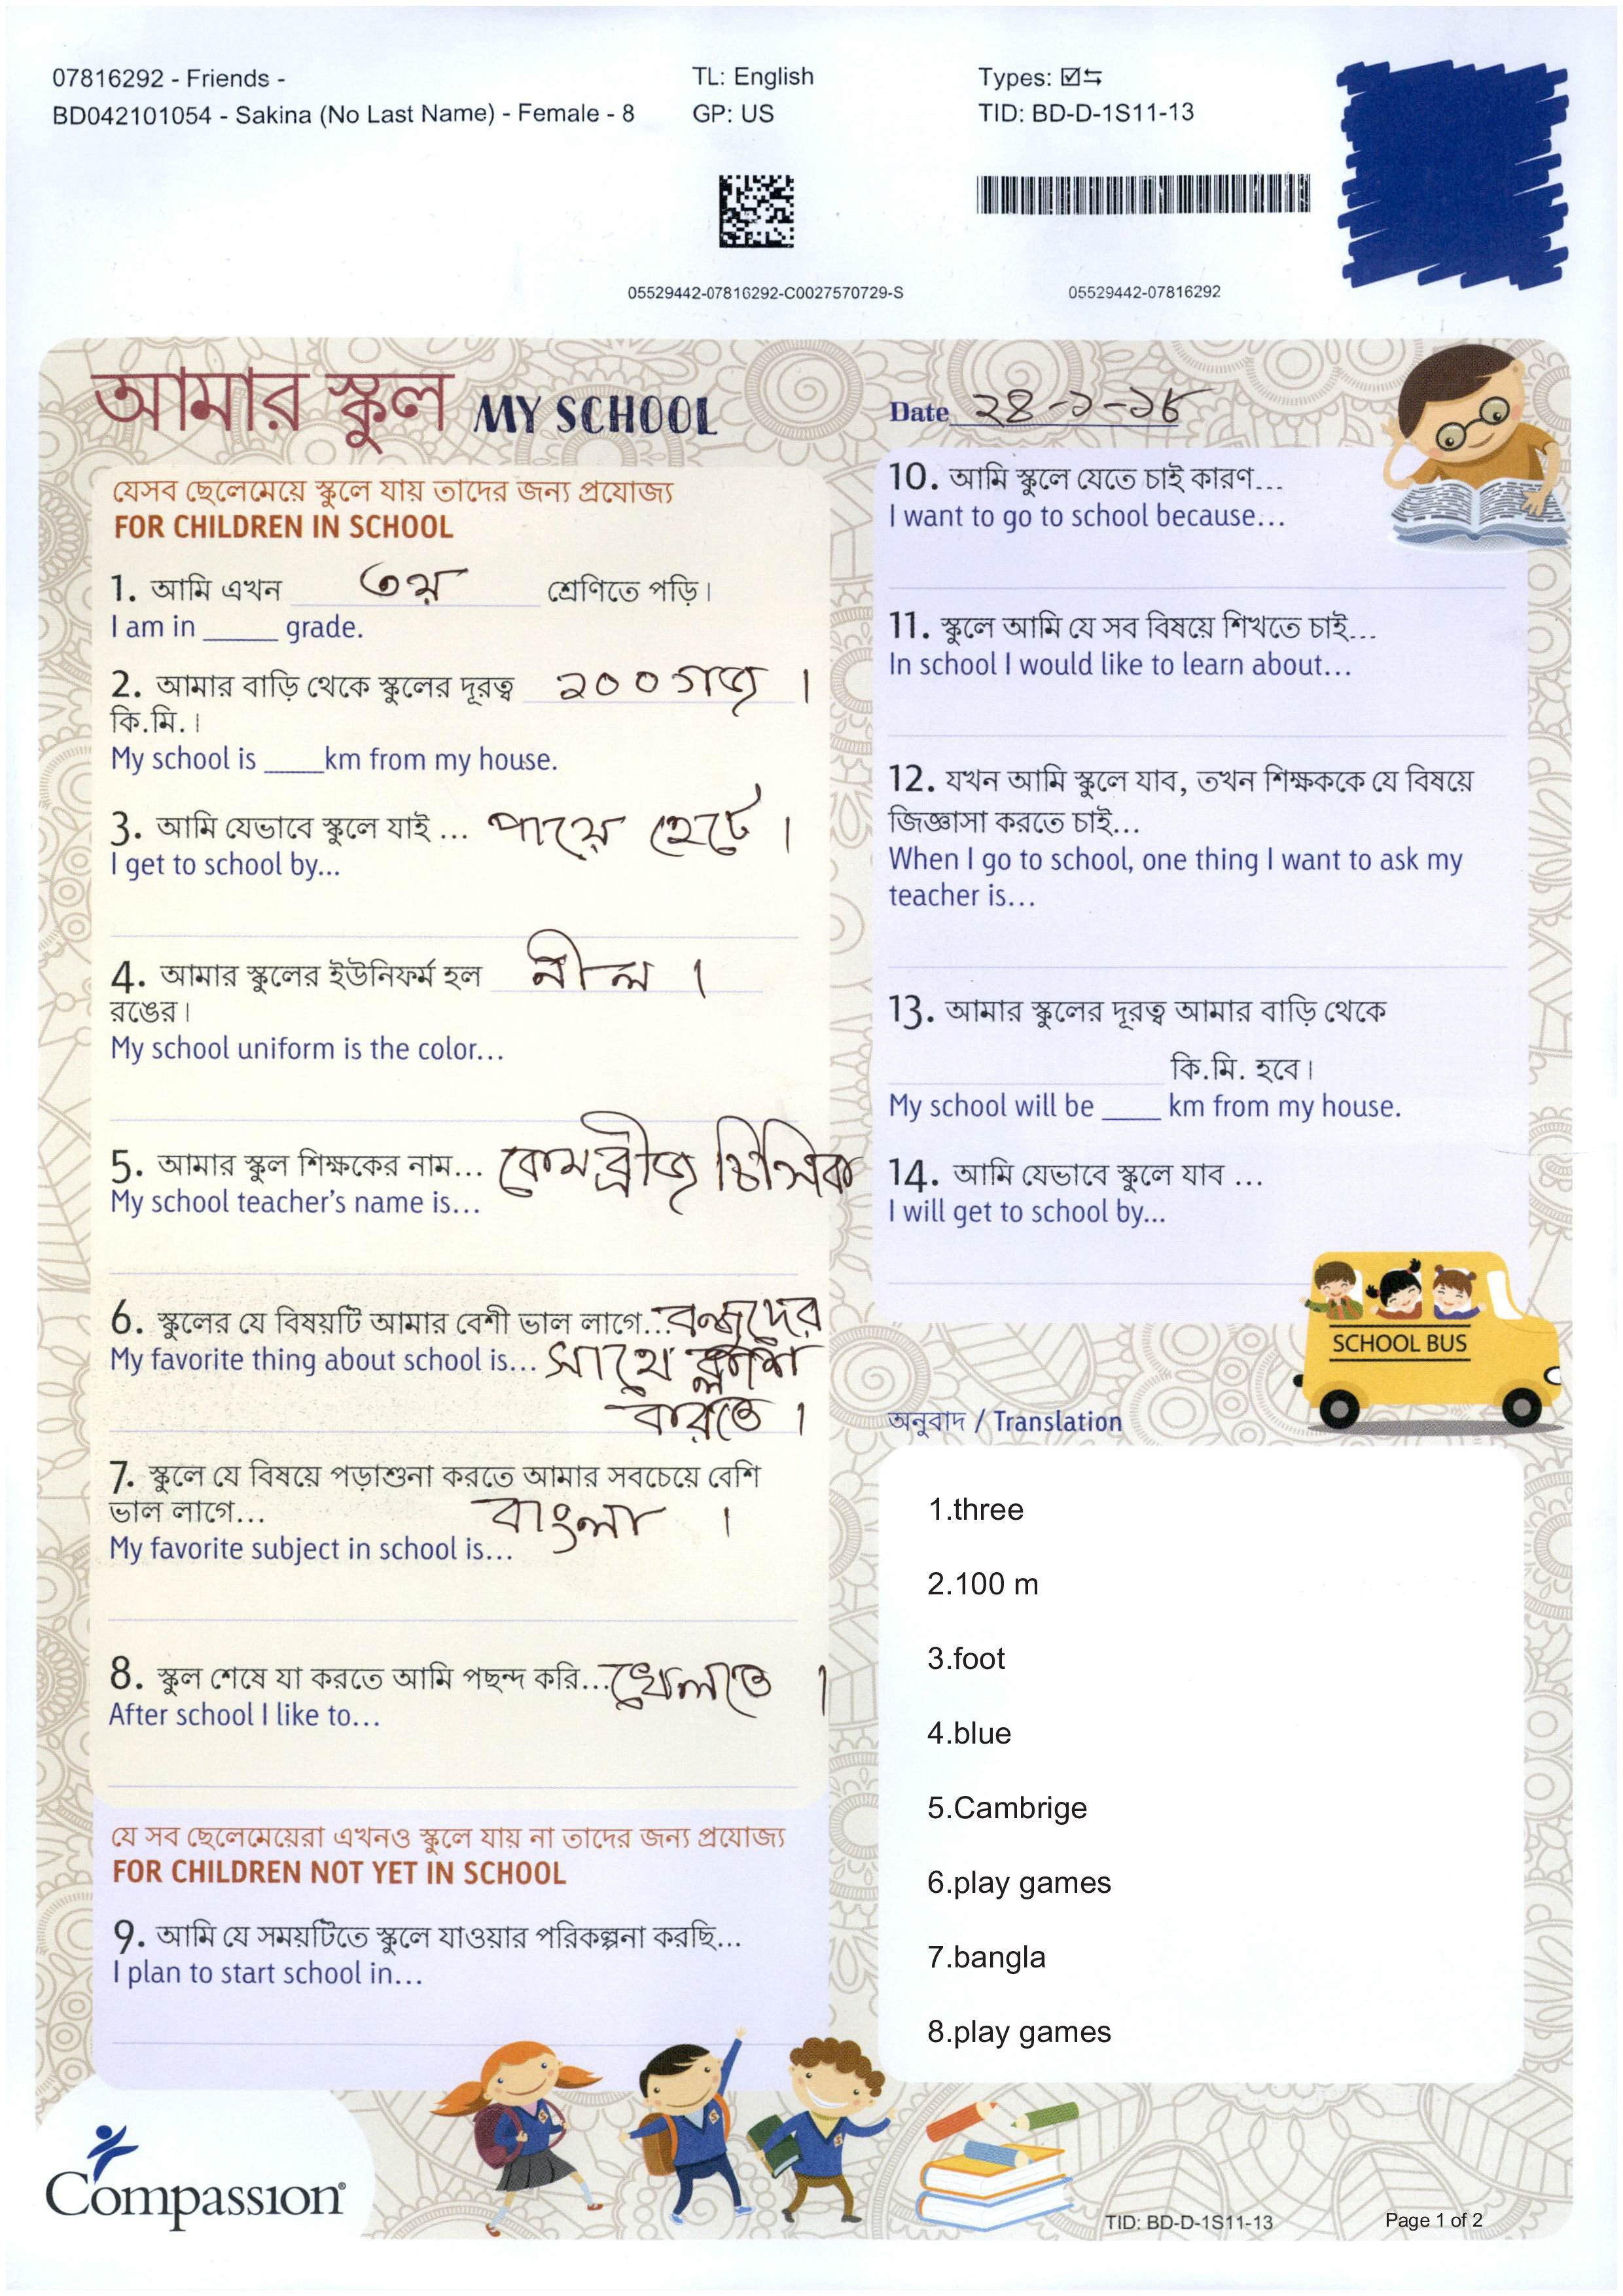 07816292 - Friends -
BD042101054 - Sakina (No Last Name) - Female - 8
TL: English
GP: US
Types: ☑⇆
TID: BD-D-1S11-13
05529442-07816292-C0027570729-S
05529442-07816292
আমার স্কুল MY SCHOOL
Date ২৪-১-১৮
যেসব ছেলেমেয়ে স্কুলে যায় তাদের জন্য প্রযোজ্য
FOR CHILDREN IN SCHOOL
1. আমি এখন ৩য় শ্রেণিতে পড়ি।
I am in _____ grade.
2. আমার বাড়ি থেকে স্কুলের দূরত্ব ১০০গজ।
কি.মি.।
My school is ____km from my house.
3. আমি যেভাবে স্কুলে যাই ... পায়ে হেটে।
I get to school by...
4. আমার স্কুলের ইউনিফর্ম হল নীল।
রঙের।
My school uniform is the color...
5. আমার স্কুল শিক্ষকের নাম... কেমব্রীজ
My school teacher's name is...
6. স্কুলের যে বিষয়টি আমার বেশী ভাল লাগে... বন্ধুদের
My favorite thing about school is... সাথে ক্লাশ
করতে।
7. স্কুলে যে বিষয়ে পড়াশুনা করতে আমার সবচেয়ে বেশি
ভাল লাগে... বাংলা।
My favorite subject in school is...
8. স্কুল শেষে যা করতে আমি পছন্দ করি... খেলতে।
After school I like to...
যে সব ছেলেমেয়েরা এখনও স্কুলে যায় না তাদের জন্য প্রযোজ্য
FOR CHILDREN NOT YET IN SCHOOL
9. আমি যে সময়টিতে স্কুলে যাওয়ার পরিকল্পনা করছি...
I plan to start school in...
10. আমি স্কুলে যেতে চাই কারণ...
I want to go to school because...
11. স্কুলে আমি যে সব বিষয়ে শিখতে চাই...
In school I would like to learn about...
12. যখন আমি স্কুলে যাব, তখন শিক্ষককে যে বিষয়ে
জিজ্ঞাসা করতে চাই...
When I go to school, one thing I want to ask my
teacher is...
13. আমার স্কুলের দূরত্ব আমার বাড়ি থেকে
কি.মি. হবে।
My school will be ____ km from my house.
14. আমি যেভাবে স্কুলে যাব ...
I will get to school by...
SCHOOL BUS
অনুবাদ / Translation
1.three
2.100 m
3.foot
4.blue
5.Cambrige
6.play games
7.bangla
8.play games
Compassion®
TID: BD-D-1S11-13
Page 1 of 2